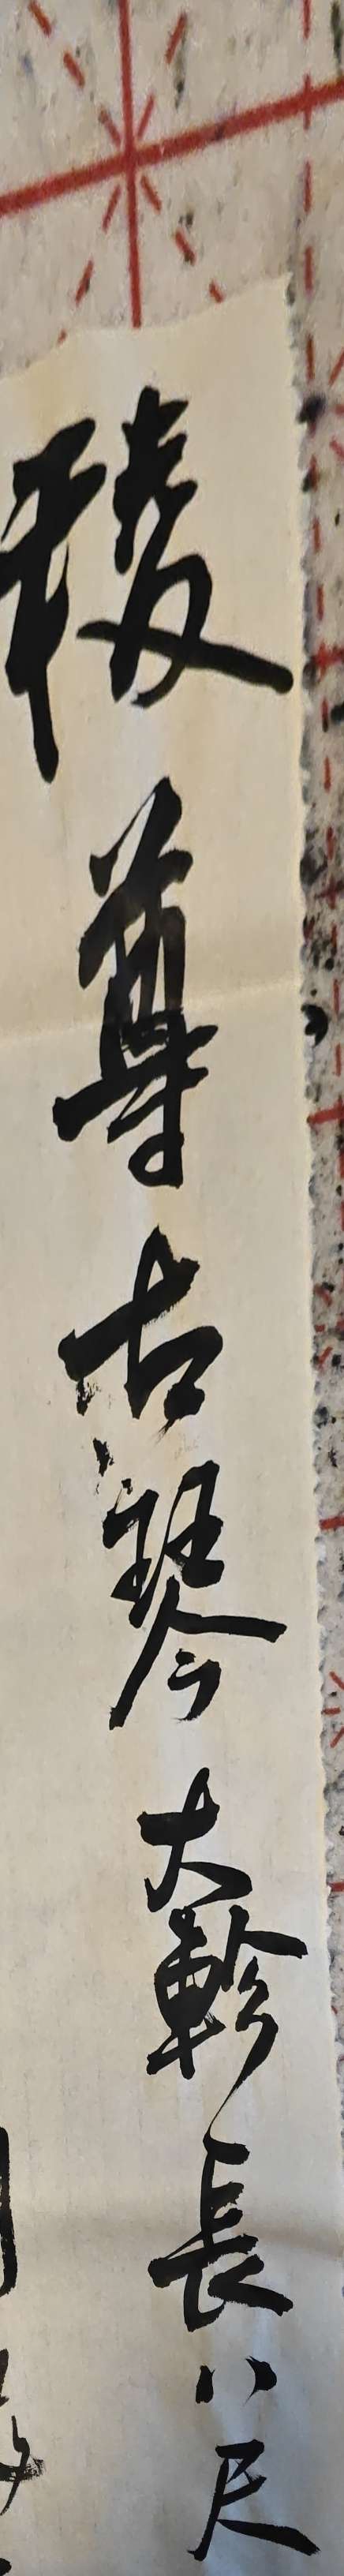 稜尊古琴大軫長八尺